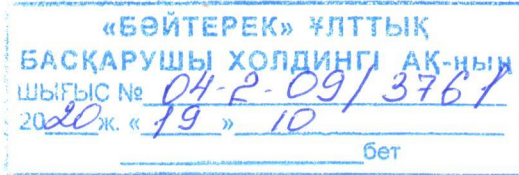 «БӘЙТЕРЕК» ҰЛТТЫҚ
БАСҚАРУШЫ ХОЛДИНГІ АҚ-ның
ШЫҒЫС № 04-2-09/3761
2020 ж. « 19 » 10
бет